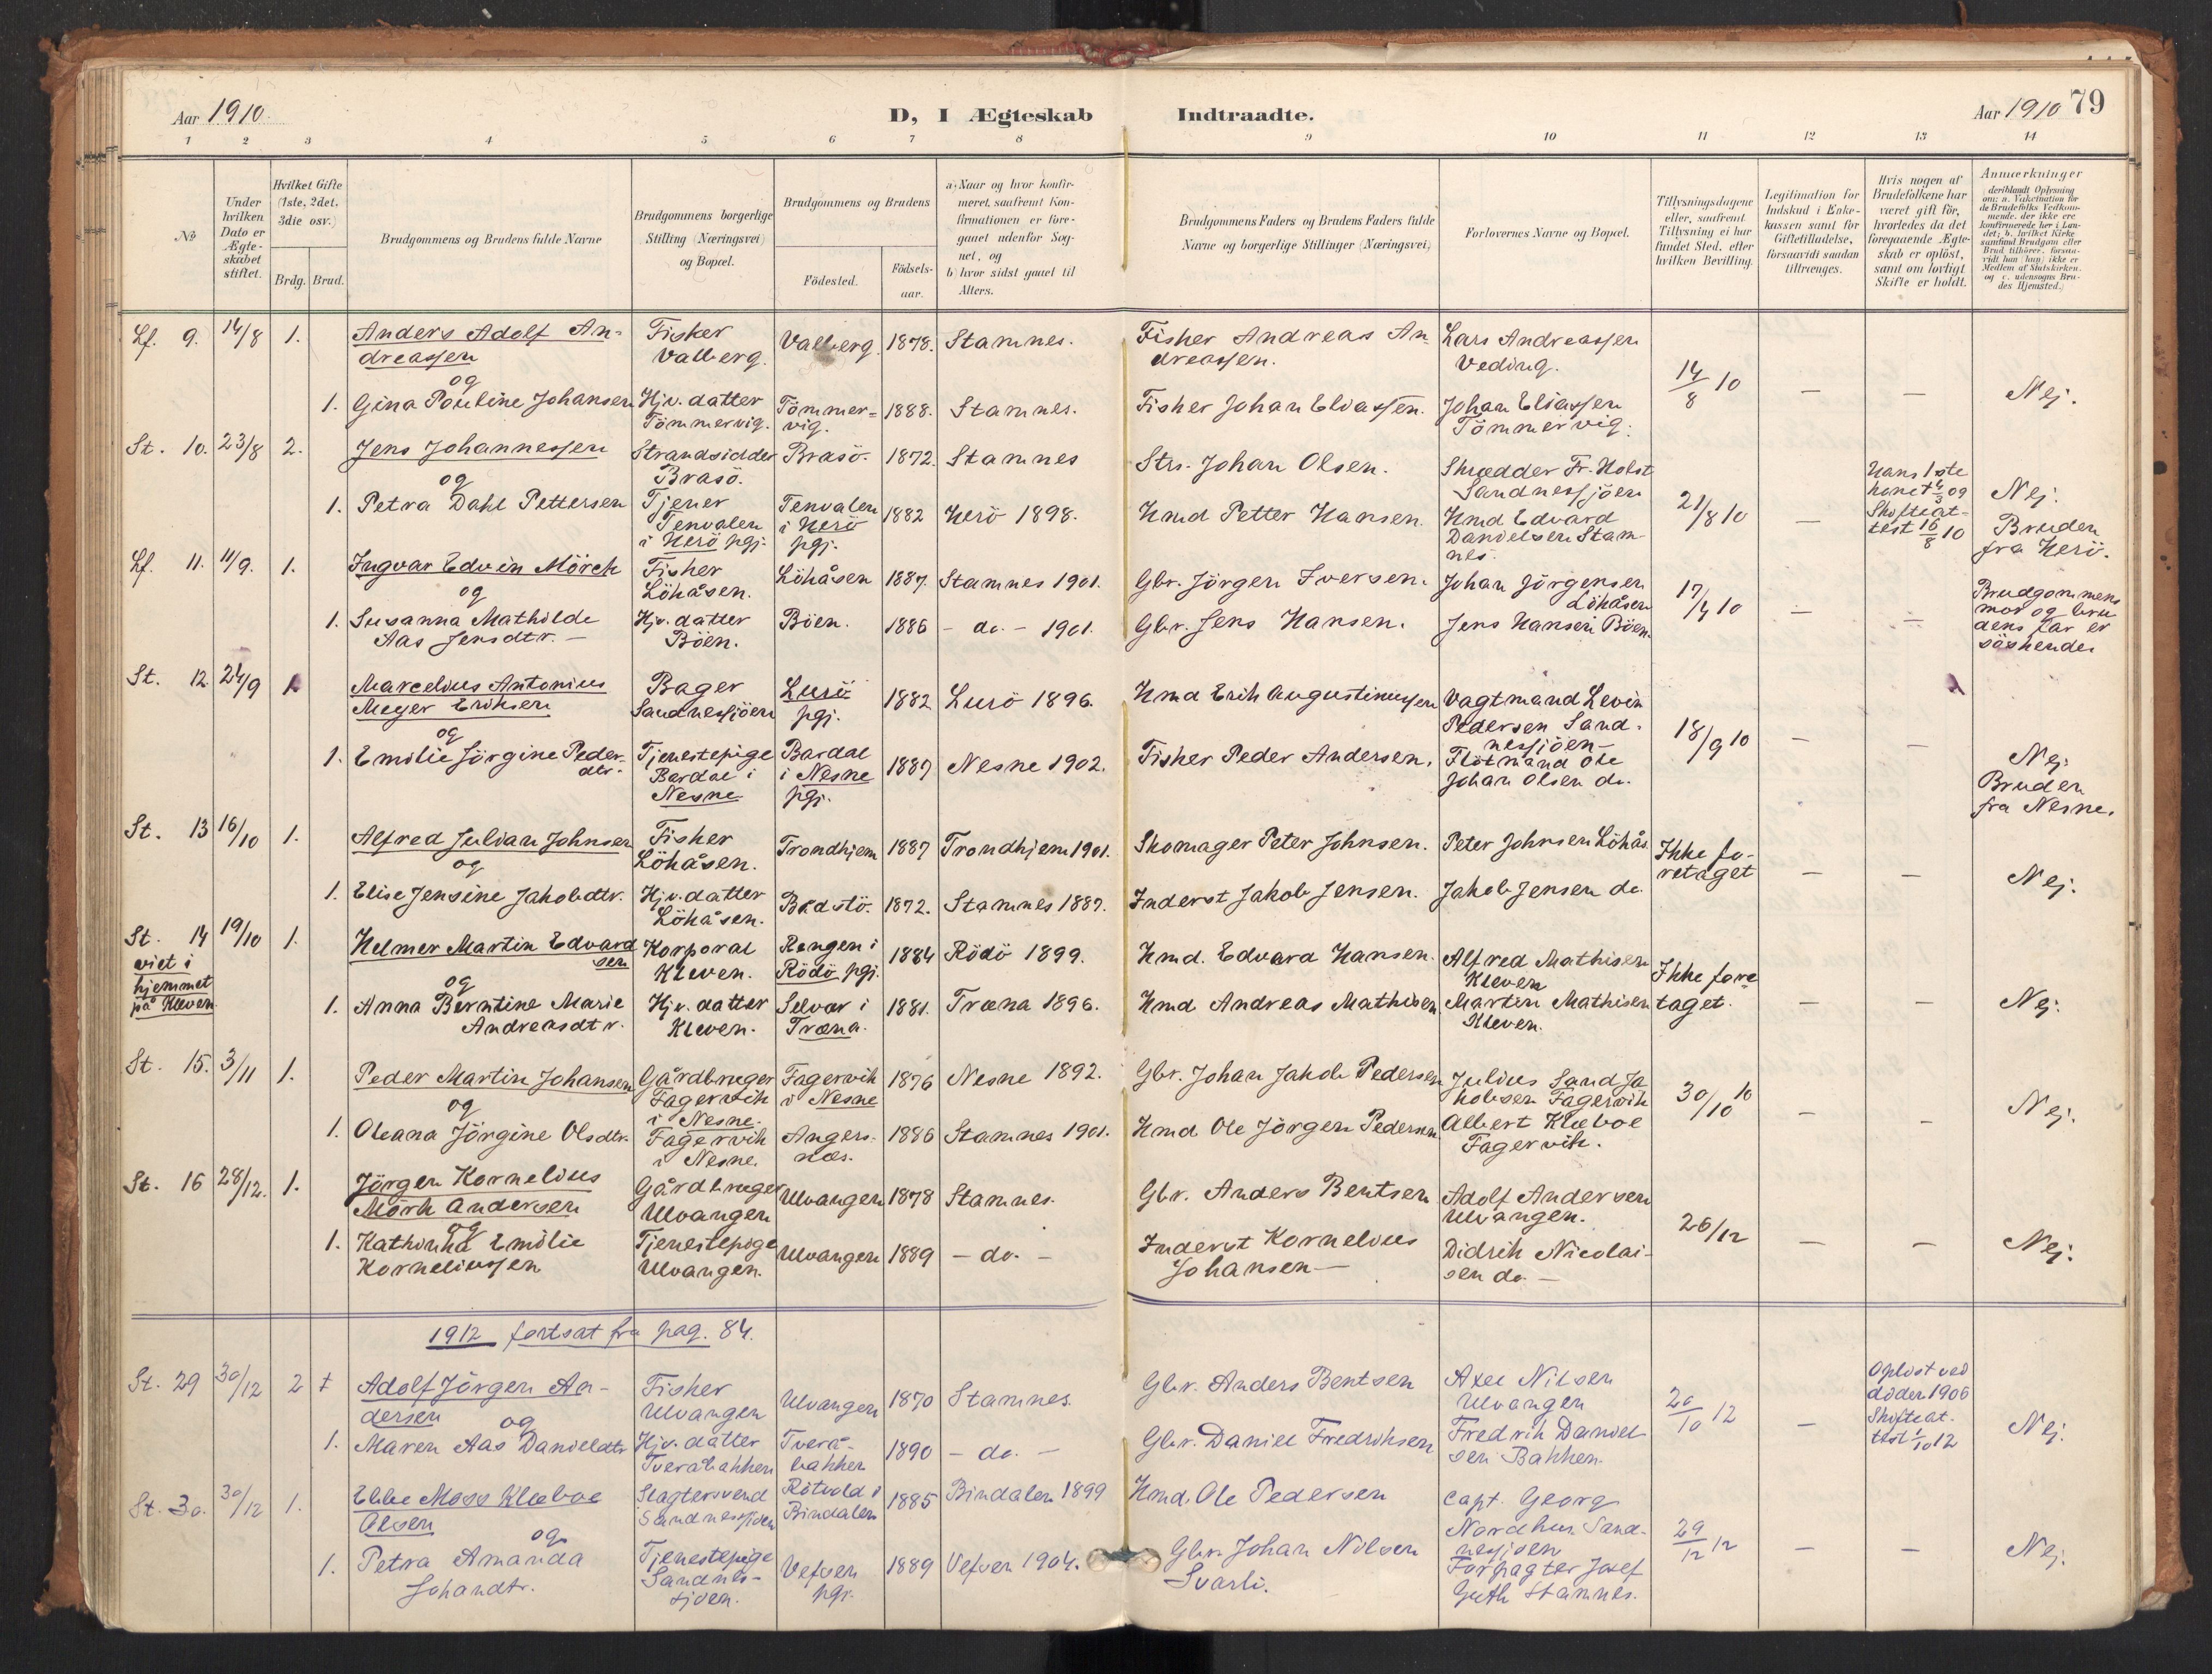 Aar 1910. D, I Ægteskab Indtraadte. Aar 1910 79
1 2 3 4 5 6 7 8 9 10 11 12 13 14
No
Under hvilken Dato er Ægteskabet stiftet.
Hvilket Gifte (1ste, 2det, 3die osv.)
Brdg. Brud.
Brudgommens og Brudens fulde Navne
Brudgommens borgerlige Stilling (Næringsvei) og Bopæl.
Brudgommens og Brudens
Fødested.
Fødsels-aar.
a) Naar og hvor konfirmeret, saafremt Konfirmationen er foregaaet udenfor Sognet, og
b) hvor sidst gaaet til Alters.
Brudgommens Faders og Brudens Faders fulde Navne og borgerlige Stillinger (Næringsvei)
Forlovernes Navne og Bopæl.
Tillysningsdagene eller, saafremt Tillysning ei har fundet Sted, efter hvilken Bevilling.
Legitimation for Indskud i Enkekassen samt for Giftetilladelse, forsaavidt saadan tiltrænges.
Hvis nogen af Brudefolkene har været gift før, hvorledes da det foregaaende Ægteskab er opløst, samt om lovligt Skifte er holdt.
Anmærkninger
(deriblandt Oplysning om: a. Vakcination for de Brudefolks Vedkommende, der ikke ere konfirmerede her i Landet; b. hvilket Kirkesamfund Brudgom eller Brud tilhører, forsaavidt han (hun) ikke er Medlem af Statskirken, og c. udensogns Brudes Hjemsted.)
Lf. 9. 14/8 1. Anders Adolf Andreassen Fisker Valberg. Valberg. 1878. Stamnes. Fisker Andreas Andreassen. Lars Andreassen Veding. 14/8 10 — — Nej.
og
1. Gina Pouline Johansen Hjv. datter Tömmervig. Tömmervig. 1888. Stamnes. Fisker Johan Eliassen. Johan Eliassen Tömmervig.
St. 10. 23/8 2. Jens Johannessen Strandsidder Brasö. Brasö. 1872. Stamnes Strs. Johan Olsen. Skrædder Fr. Holst Sandnessjöen 21/8 10 — Hans 1ste kone † 4/3 09 Skifteattest 16/8 10 Nej. Bruden fra Herö.
og
1. Petra Dahl Pettersen Tjener Tenvalen i Herö pgj. Tenvalen i Herö pgj. 1882 Herö 1898. Kmd Petter Hansen. Kmd Edvard Danielsen Stamnes.
Lf. 11. 11/9. 1. Ingvar Edvin Mörch Fisker Löhåsen. Löhåsen 1887. Stamnes 1901. Gbr. Jörgen Iversen. Johan Jörgensen Löhåsen — — Brudgommens mor og brudens far er söskende
og
1. Susanna Mathilde Aas Jensdtr. — Hjv. datter Böen. Böen. 1886 — do. — 1901. Gbr. Jens Hansen. Jens Hansen Böen.
St. 12 24/9 Marcelius Antonius Meyer Eriksen Bager Sandnessjöen Lurö pgj. 1882 Lurö 1896. Kmd Erik Augustinussen Vagtmand Levin Pedersen Sandnessjöen — 18/9 10 — — Nej. Bruden fra Nesne.
og
1. Emilie Jörgine Pedersdtr. Tjenestepige Bardal i Nesne Bardal i Nesne pgj. 1887 Nesne 1902. Fisker Peder Andersen. Flötmand Ole Johan Olsen do.
St. 13 16/10 1. Alfred Julian Johnsen Fisker Löhåsen. Trondhjem 1887 Trondhjem 1901. Skomager Peter Johnsen. Peter Johnsen Löhås. Ikke foretaget — — Nej.
og
1. Elise Jensine Jakobdtr. Hjv. datter Löhåsen. 1872. Stamnes 1887. Inderst Jakob Jensen. Jakob Jensen do
St. 14 19/10 1. Helmer Martin Edvardsen Korporal Kleven. Rengen i Rödö pgj. 1884 Rödö 1899. Kmd. Edvard Hansen. Alfred Mathisen Kleven Ikke foretaget. — — Nej.
viet i hjemmet på Kleven
og
1. Anna Berntine Marie Andreasdtr. Hjv. datter Kleven. Selvær i Træna. 1881. Træna 1896. Kmd Andreas Mathisen Martin Mathisen Kleven.
St. 15. 3/11 1. Peder Martin Johansen Gårdbruger Fagervik i Nesne. Fagervik i Nesne 1876 Nesne 1892. Gbr. Johan Jakob Pedersen Julius Sand Jakobsen Fagervik 30/10 10 — — Nej.
og
1. Oleana Jörgine Olsdtr. Fagervik i Nesne. Angersnæs. 1886 Stamnes 1901. Kmd Ole Jörgen Pedersen Albert Klæboe Fagervik.
St. 16 28/12. 1. Jörgen Kornelius Mörk Andersen Gårdbruger Ulvangen Ulvangen 1878 Stamnes. Gbr. Anders Bentsen Adolf Andersen Ulvangen. 26/12 — — Nej.
og
1. Kathinka Emilie Korneliussen Tjenestepige Ulvangen. Ulvangen 1889 — do. — Inderst Kornelius Johansen — Didrik Nicolaisen do. —
1912 fortsat fra pag. 84.
St. 29 30/12 2 Adolf Jörgen Andersen Fisker Ulvangen Ulvangen 1870 Stamnes. Gbr. Anders Bentsen Axel Nilsen Ulvangen 20/10 12 — Oplöst ved döden 1906 Skifteattest 1/10 12 Nej.
og
1. Maren Aas Danieldtr Hjv. datter Tveråbakken Tveråbakken 1890 — do. — Gbr. Daniel Fredriksen Fredrik Danielsen Bakken.
St. 30. 30/12 1. Ebbe Moss Klæboe Olsen Slagtersvend Sandnessjöen Rötvold i Bindalen 1885 Bindalen 1899 Kmd. Ole Pedersen Capt. Georg Nordhus Sandnessjöen 29/12 12 — — Nej.
og
1. Petra Amanda Johandtr. Tjenestepige Sandnessjöen. Vefsen pgj. 1889 Vefsen 1904. Gbr. Johan Nilsen Svarli. Forpagter Josef Guth Stamnes.